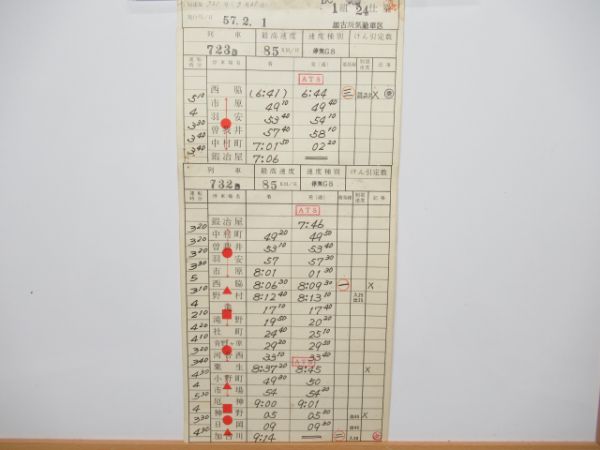 1組 24仕業
57.2.1 加古川気動車区
列車 最高速度 速度種別 けん引定数
723D 85 KM/H 停気G8
運転時分 停車場名 着 発(通) 着発線 制限速度 記事
ATS
西脇 (6:41) 6:44 三 X
5 10 市原 49 10 49 40
4 羽安 53 40 54 10
3 30 曽我井 57 40 58 10
3 40 中村町 7:01 50 02 20
3 40 鍛冶屋 7:06
列車 最高速度 速度種別 けん引定数
732D 85 KM/H 停気G8
運転時分 停車場名 着 発(通) 着発線 制限速度 記事
ATS
鍛冶屋 7:46
3 20 中村町 49 20 49 50
3 20 曽我井 53 10 53 40
3 20 羽安 57 57 30
3 30 市原 8:01 01 30
5 西脇 8:06 30 8:09 30 一 X
3 10 野村 8:12 40 8:13 10
4 滝 17 10 17 40
2 10 滝野 19 50 20 20
4 社町 24 40 25 10
青野ヶ原 29 20 29 50
河合西 33 10 33 40
ATS
粟生 8:37 20 8:45 X
4 30 小野町 49 30 50
4 市場 54 54 30
厄神 9:00 9:01
4 神野 05 05 30 X
3 30 日岡 09 09 30
4 30 加古川 9:14